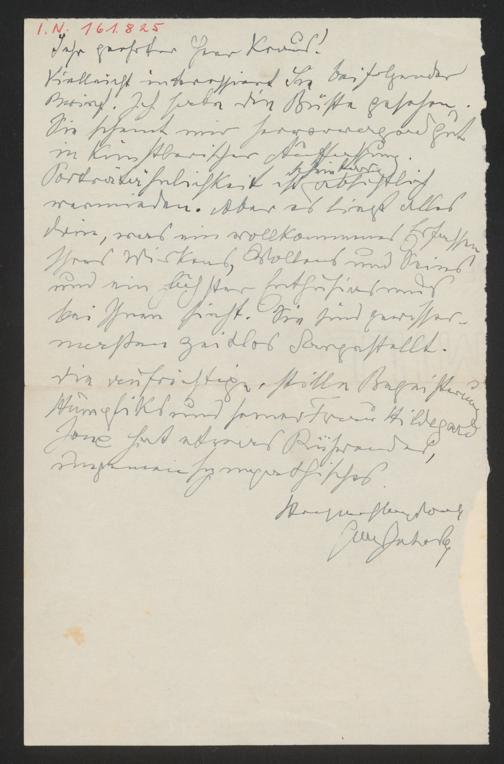 I.N. 161.825
Sehr geehrter Herr Kraus!
Vielleicht interessiert Sie beifolgender
Brief. Ich habe die Büste gesehen.
Sie scheint mir hervorragend gut
in künstlerischer Auffassung.
Porträtähnlichkeit ist scheinbar absichtlich
vermieden. Aber es liegt alles
drin, was ein vollkommenes Erfassen
Ihres Wirkens, Wollens und Seins
und ein höchster Enthusiasmus
bei Ihnen sieht. Sie sind gewisser-
maßen zeitlos dargestellt.
Die aufrichtige, stille Begeisterung
Humpliks und seiner Frau Hildegard
Jone hat etwas Rührendes,
ungemein sympathisches.
Hochachtungsvoll